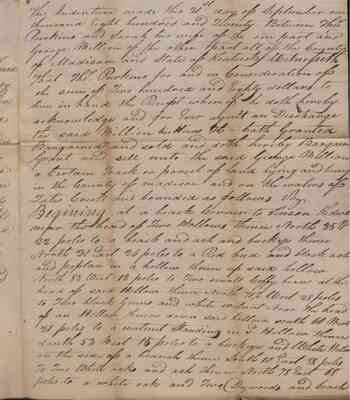 This Indenture made the 21st day of September one
thousand Eight hundred and Twenty Between Thos
Perkins and Sarah his wife of the one part and
George William of the other part all of the County
of Madison and State of Kentucky Witnesseth
That Thos Perkins for and in Consideration of
the sum of Two hundred and Eighty dollars to
him in hand the Receipt whereof he doth hereby
acknowledge and for Ever aquit an Discharge
the said William hath Granted
Bargained and sold and doth hereby Bargain
Grant and sell unto the said George William
a Certain Track or parcel of land lying and being
in the County of madison and on the waters of
Tates Creek and bounded as follows Viz
Begining at a beach Corner to
near the head of Two Hollows thence North 35
62 poles to a beach and ash and buckeye thence
North 31 East 26 poles to a Red bud and black ash
and poplar in a hollow thence up said hollow
North 53 West 18 poles to Two small at the
head of said Hollow thence North West 28 poles
to Two black Gums and white near the head
of an Hollow thence down said hollow south 61 West
21 poles to a in a Hollow thence
south 53 West 15 poles to a buckeye and White Walnut
on the side of a branch thence South 61 East 18 poles
to Two White oaks and ash thence North 78 East 18
poles to a white oak and Two Dogwoods and beach